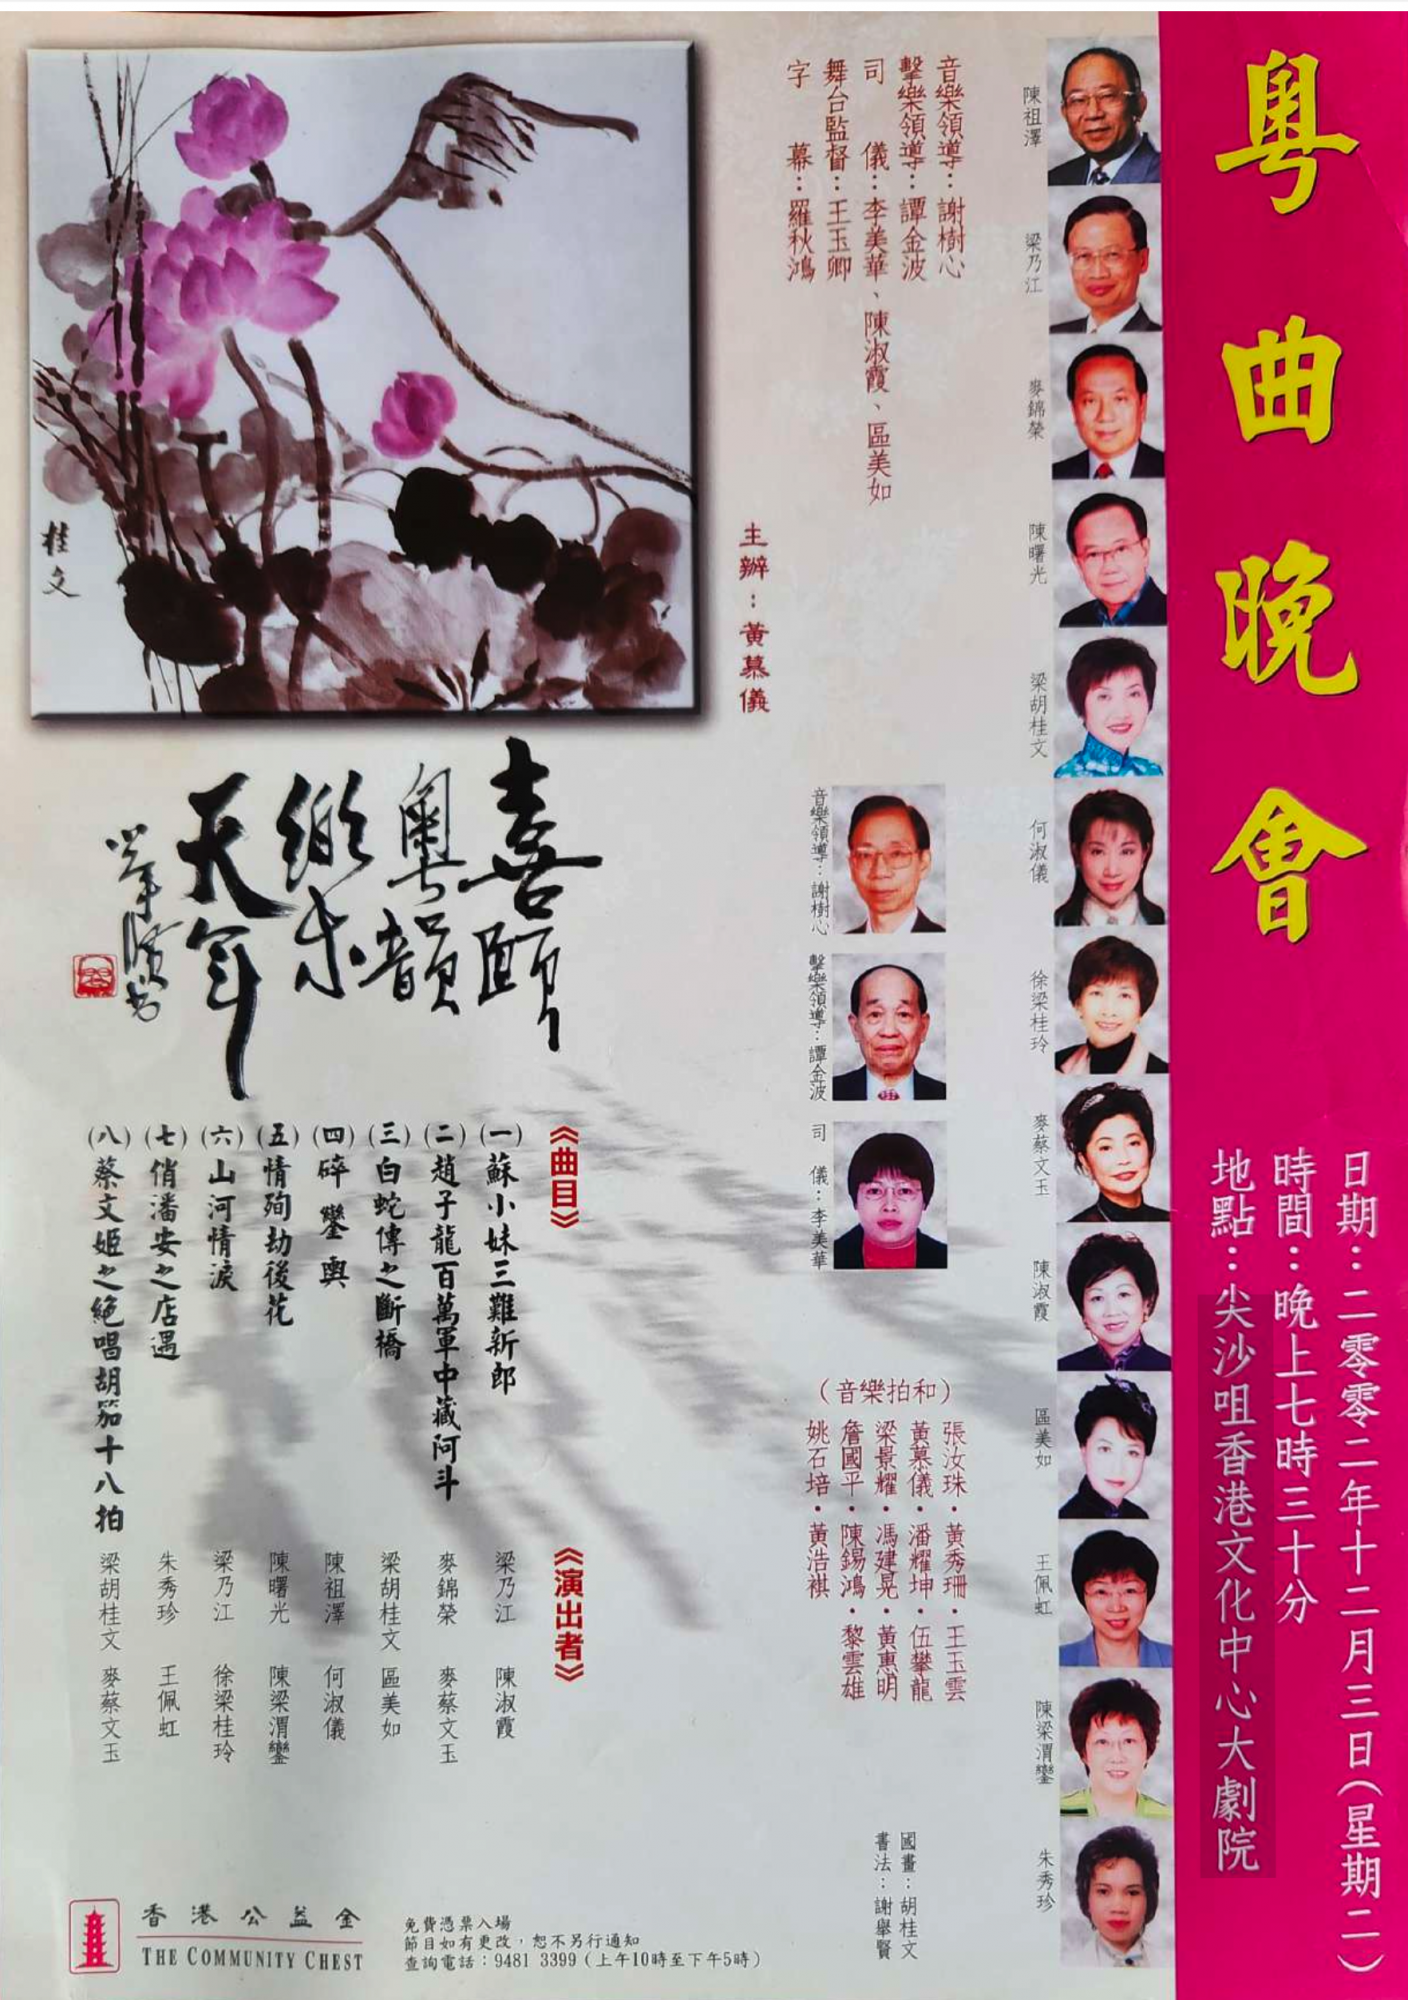 粵曲晚會
日期：二零零二年十二月三日（星期二）
時間：晚上七時三十分
地點：尖沙咀香港文化中心大劇院
陳祖澤
梁乃江
麥錦榮
陳曙光
梁胡桂文
何淑儀
徐梁桂玲
麥蔡文玉
陳淑霞
區美如
王佩虹
陳梁渭鑾
朱秀珍
音樂領導：謝樹心
擊樂領導：譚金波
司　儀：李美華、陳淑霞、區美如
舞台監督：王玉卿
字　幕：羅秋鴻
主辦：黃慕儀
音樂領導：謝樹心
擊樂領導：譚金波
司　儀：李美華
（音樂拍和）
張汝珠・黃秀珊・王玉雲
黃慕儀・潘耀坤・伍攀龍
梁景耀・馮建晃・黃惠明
詹國平・陳錫鴻・黎雲雄
姚石培・黃浩祺
國畫：胡桂文
書法：謝舉賢
桂文
喜頤
粵韻
樂
天年
《曲目》
(一)蘇小妹三難新郎
(二)趙子龍百萬軍中藏阿斗
(三)白蛇傳之斷橋
(四)碎鑾輿
(五)情殉劫後花
(六)山河情淚
(七)俏潘安之店遇
(八)蔡文姬之絕唱胡笳十八拍
《演出者》
梁乃江　陳淑霞
麥錦榮　麥蔡文玉
梁胡桂文　區美如
陳祖澤　何淑儀
陳曙光　陳梁渭鑾
梁乃江　徐梁桂玲
朱秀珍　王佩虹
梁胡桂文　麥蔡文玉
香港公益金
THE COMMUNITY CHEST
免費憑票入場
節目如有更改，恕不另行通知
查詢電話：9481 3399（上午10時至下午5時）